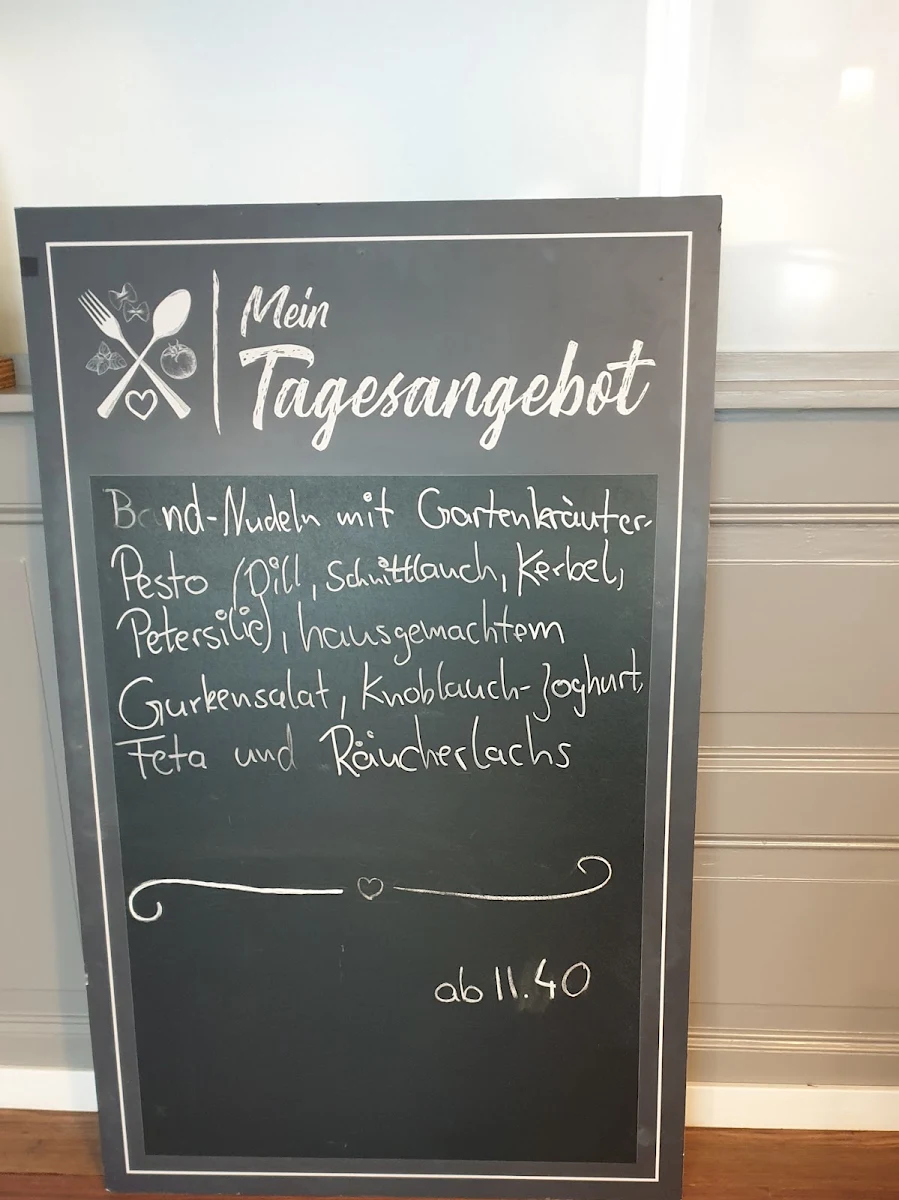 Mein
Tagesangebot
Band-Nudeln mit Gartenkräuter-
Pesto (Dill, Schnittlauch, Kerbel,
Petersilie), hausgemachtem
Gurkensalat, Knoblauch-Joghurt,
Feta und Räucherlachs
ab 11.40